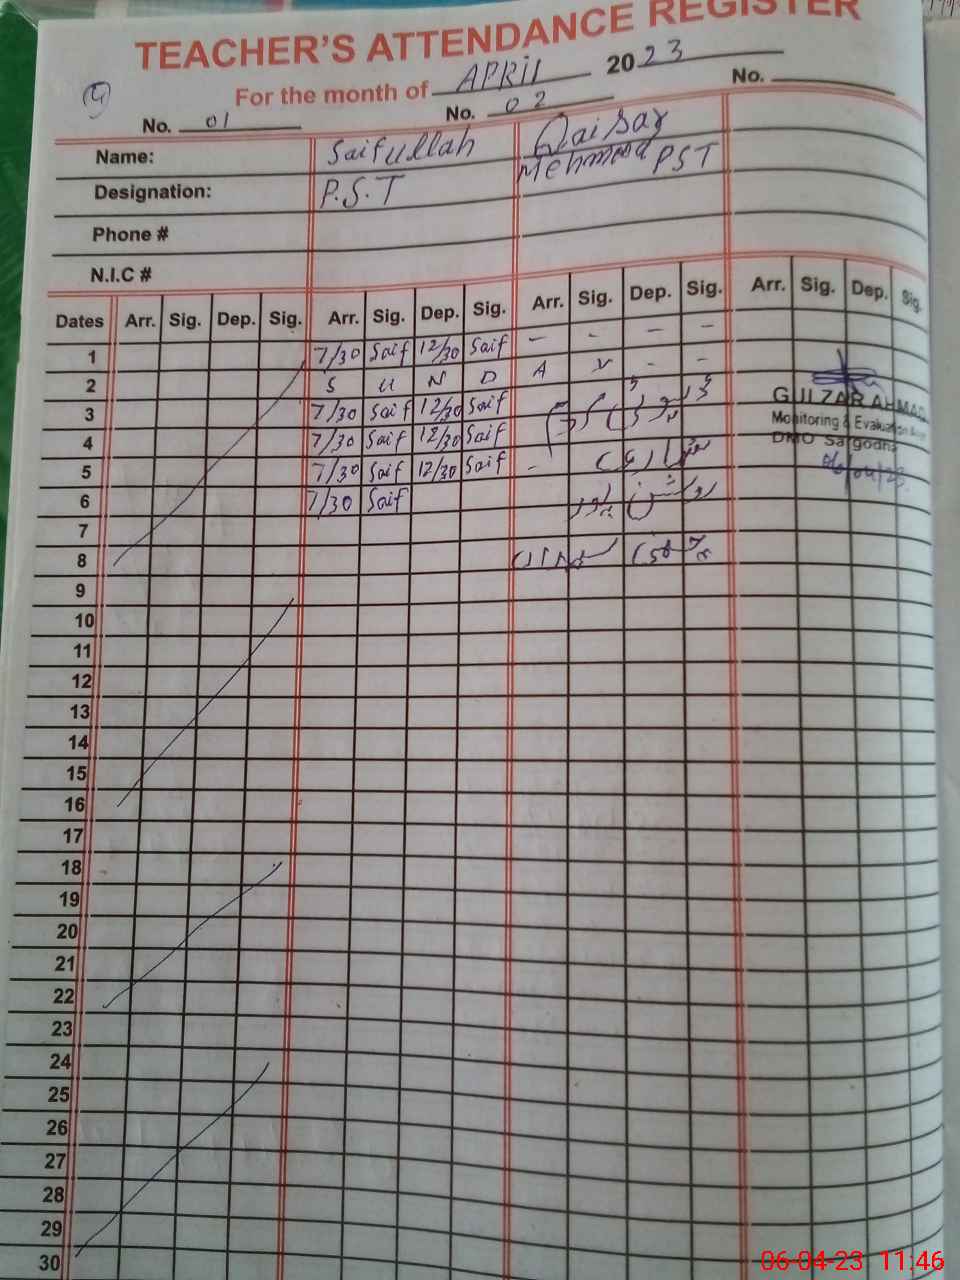 TEACHER'S ATTENDANCE REGISTER
For the month of APRIL 2023
9
No. 01 No. 02 No.
Name: Saifullah Qaisar
Mehmood PST
Designation: P.S.T
Phone #
N.I.C #
Dates Arr. Sig. Dep. Sig. Arr. Sig. Dep. Sig. Arr. Sig. Dep. Sig. Arr. Sig. Dep. Sig.
1 7/30 Saif 12/30 Saif - - - -
2 S U N D A Y - -
3 7/30 Saif 12/30 Saif
4 7/30 Saif 12/30 Saif
5 7/30 Saif 12/30 Saif -
6 7/30 Saif
7
8
9
10
11
12
13
14
15
16
17
18
19
20
21
22
23
24
25
26
27
28
29
30
GULZAR AHMAD
Monitoring & Evaluation
DMO Sargodha
06/04/23
06-04-23 11:46